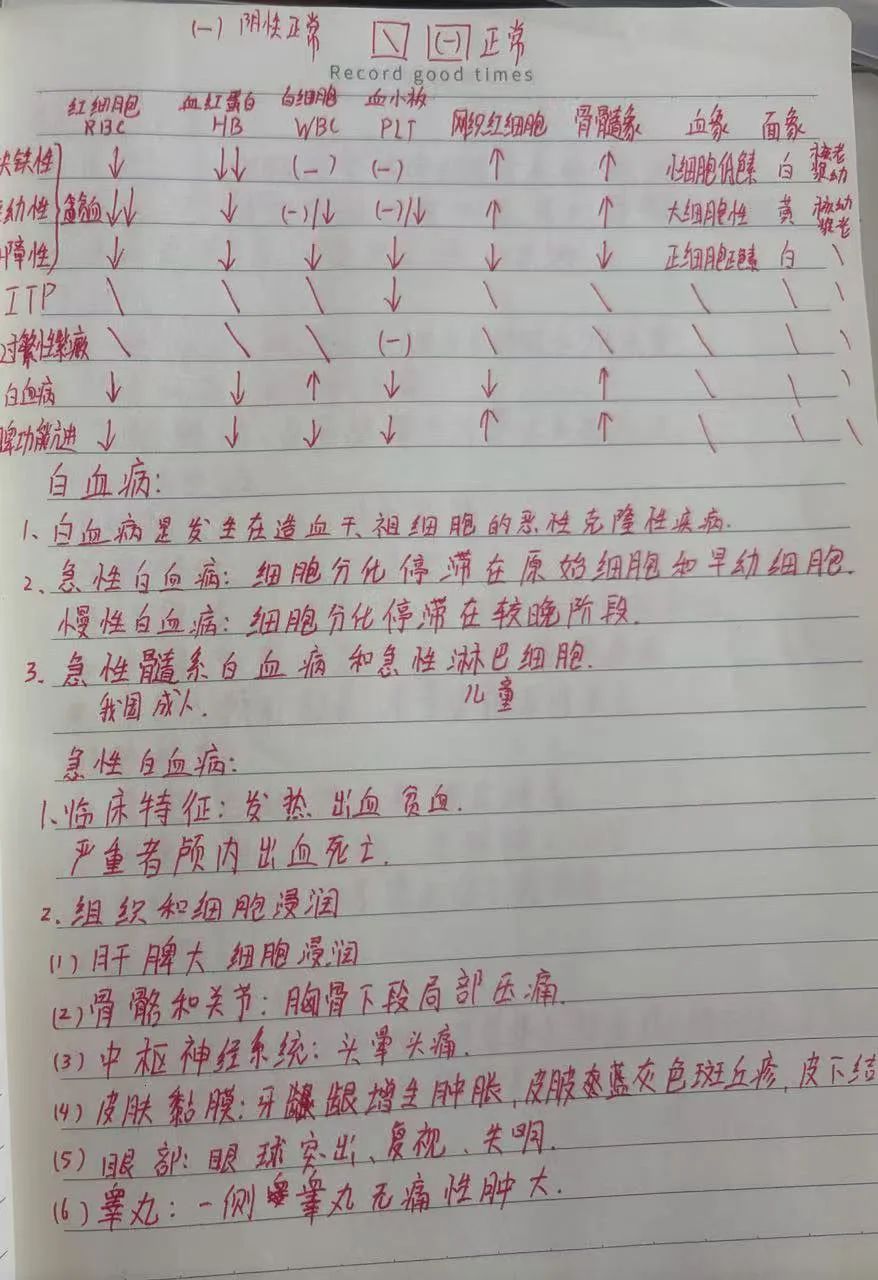 (一) 阴性正常 \ (一) 正常
Record good times
红细胞 血红蛋白 白细胞 血小板
RBC HB WBC PLT 网织红细胞 骨髓象 血象 面象
缺铁性 ↓ ↓↓ (一) (一) ↑ ↑ 小细胞低色素 白 核老浆幼
幼性 贫血 ↓↓ ↓ (一)/↓ (一)/↓ ↑ ↑ 大细胞性 黄 核幼浆老
障性 ↓ ↓ ↓ ↓ ↓ ↓ 正细胞正色素 白 \
ITP \ \ \ ↓ \ \ \ \ \
过敏性紫癜 \ \ \ (一) \ \ \ \ \
白血病 ↓ ↓ ↑ ↓ ↓ ↑ \ \ \
脾功能亢进 ↓ ↓ ↓ ↓ ↑ ↑ \ \ \
白血病:
1、白血病是发生在造血干、祖细胞的恶性克隆性疾病.
2、急性白血病: 细胞分化停滞在原始细胞和早幼细胞.
慢性白血病: 细胞分化停滞在较晚阶段.
3、急性髓系白血病和急性淋巴细胞.
我国成人. 儿童
急性白血病:
1、临床特征: 发热 出血 贫血.
严重者颅内出血死亡.
2、组织和细胞浸润
(1) 肝脾大 细胞浸润
(2) 骨骼和关节: 胸骨下段局部压痛.
(3) 中枢神经系统: 头晕头痛.
(4) 皮肤黏膜: 牙龈增生肿胀, 皮肤蓝灰色斑丘疹, 皮下结
(5) 眼部: 眼球突出、复视、失明.
(6) 睾丸: 一侧睾丸无痛性肿大.